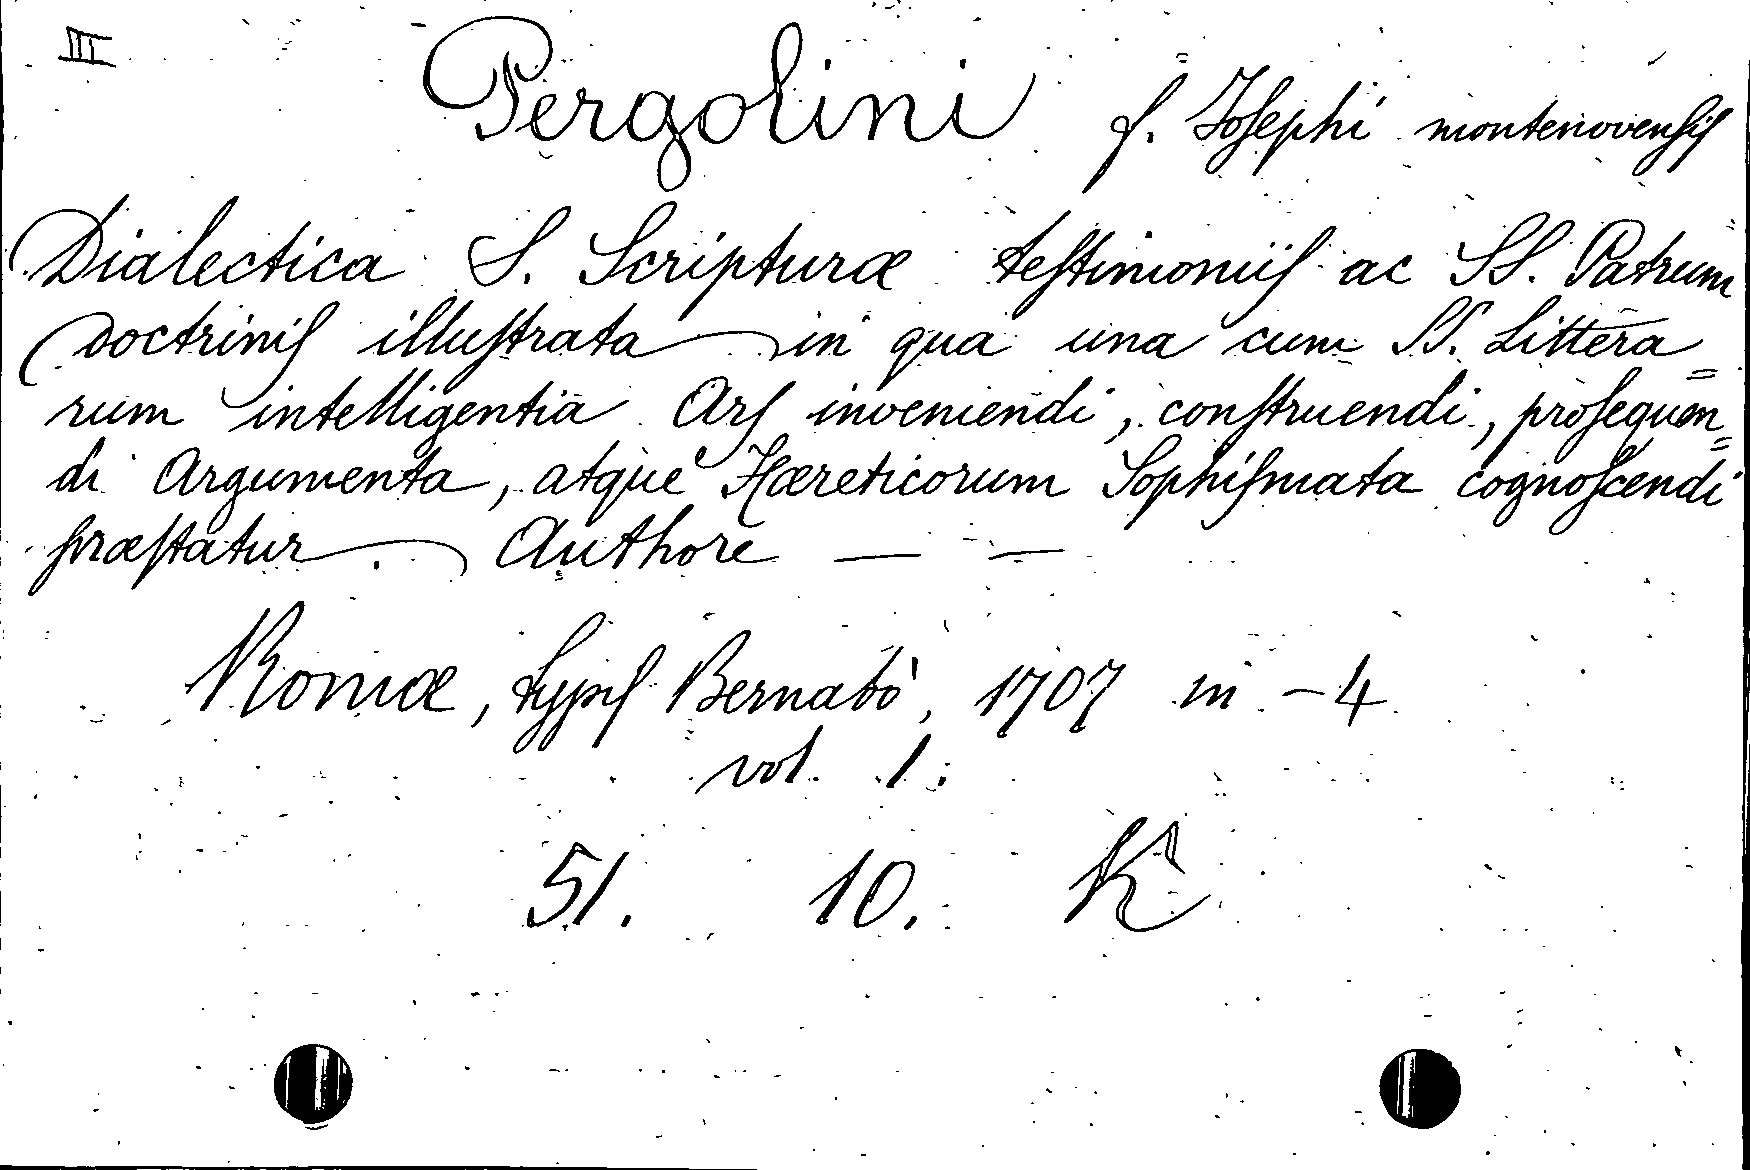 III
Pergolini f. Josephi montenovensis
Dialectica S. Scripturæ testimoniis ac SS. Patrum
Doctrinis illustrata in qua una cum SS. Littera=
rum intelligentia Ars inveniendi, construendi, prosequen=
di Argumenta, atque Hæreticorum Sophismata cognoscendi
præstatur. Authore — —
Romæ, typis Bernabò, 1707 in - 4
vol. 1.
51. 10. K